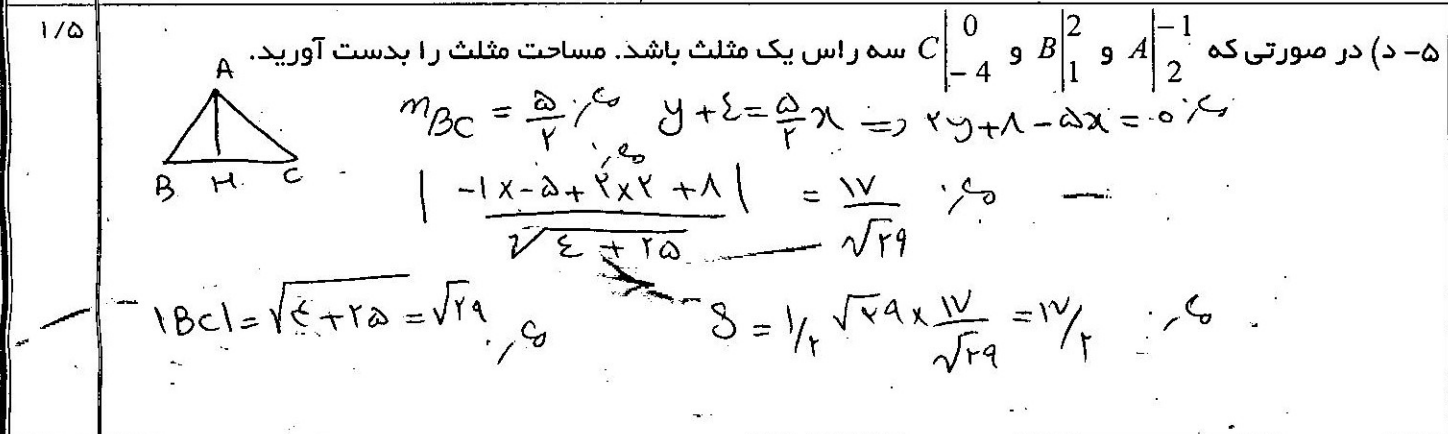 ۱/۵
۵- د) در صورتی که A|−1 2 و B|2 1 و C|0 −4 سه راس یک مثلث باشد. مساحت مثلث را بدست آورید.
A
B H C
m_BC = ۵/۲ y+٤=۵/۲ x => ۲y+۸-۵x=۰
|-۱×-۵+۲×۲+۸| / √(٤+۲۵) = ۱۷/√۲۹
|BC|=√(٤+۲۵)=√۲۹
S = ۱/۲ √۲۹ × ۱۷/√۲۹ = ۱۷/۲